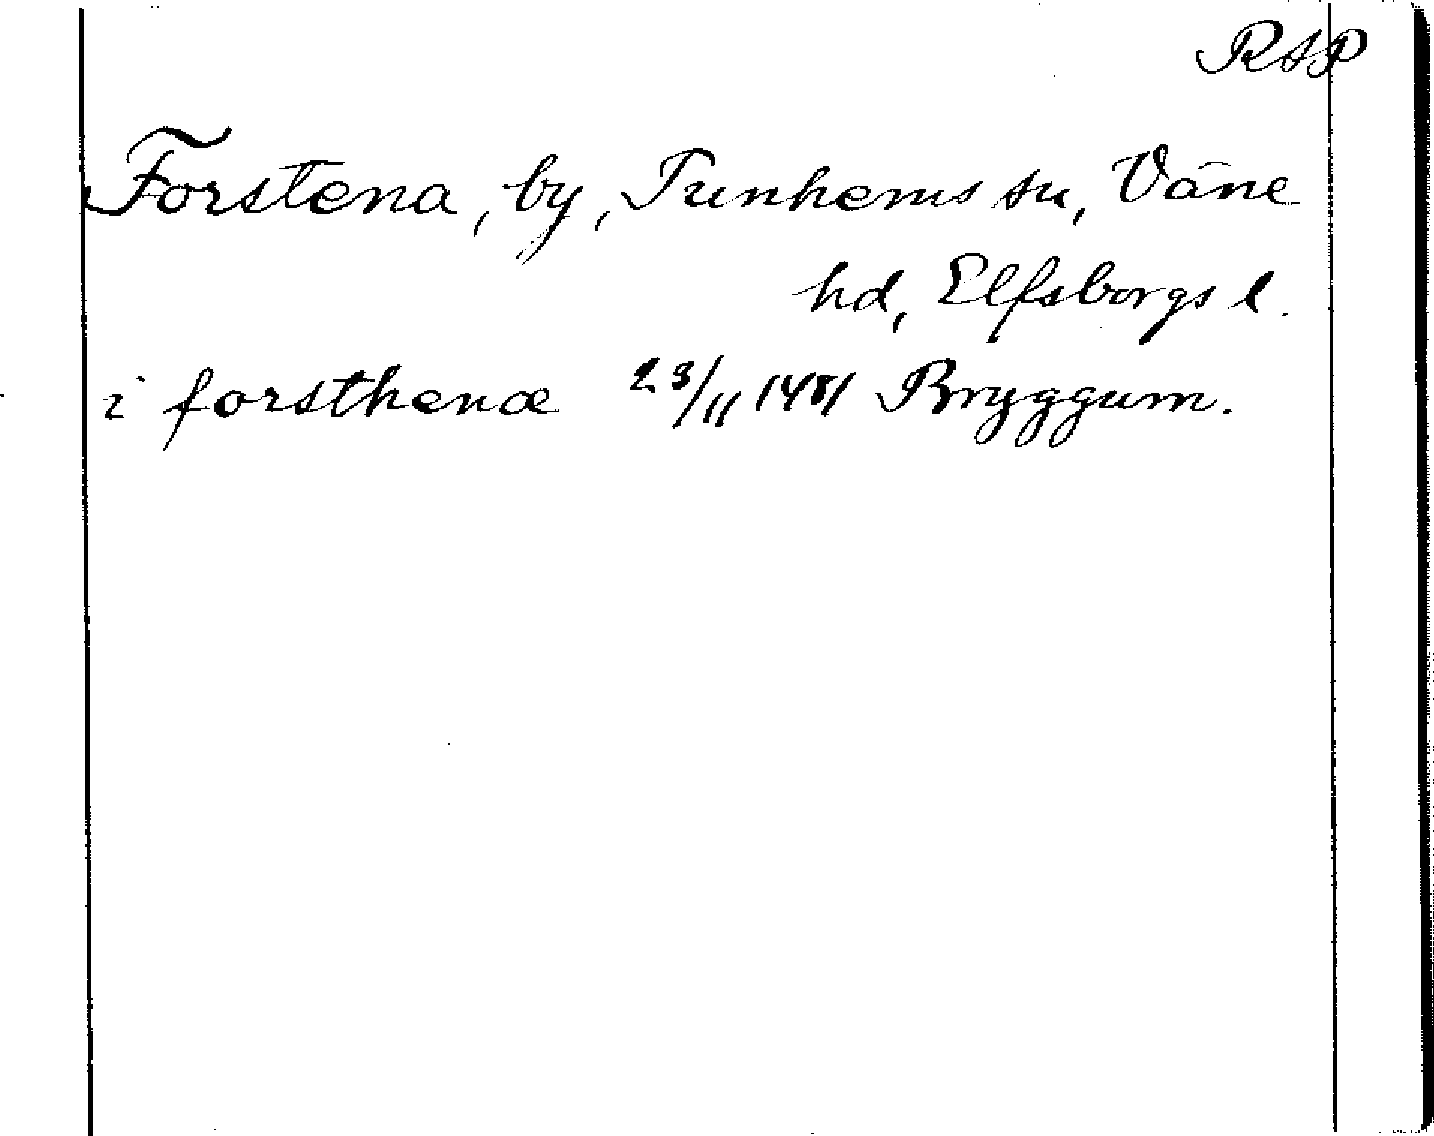 RAP
Forstena, by, Tunhems sn, Väne
hd, Elfsborgs l.
i forsthenæ 23/11 1481 Bryggum.